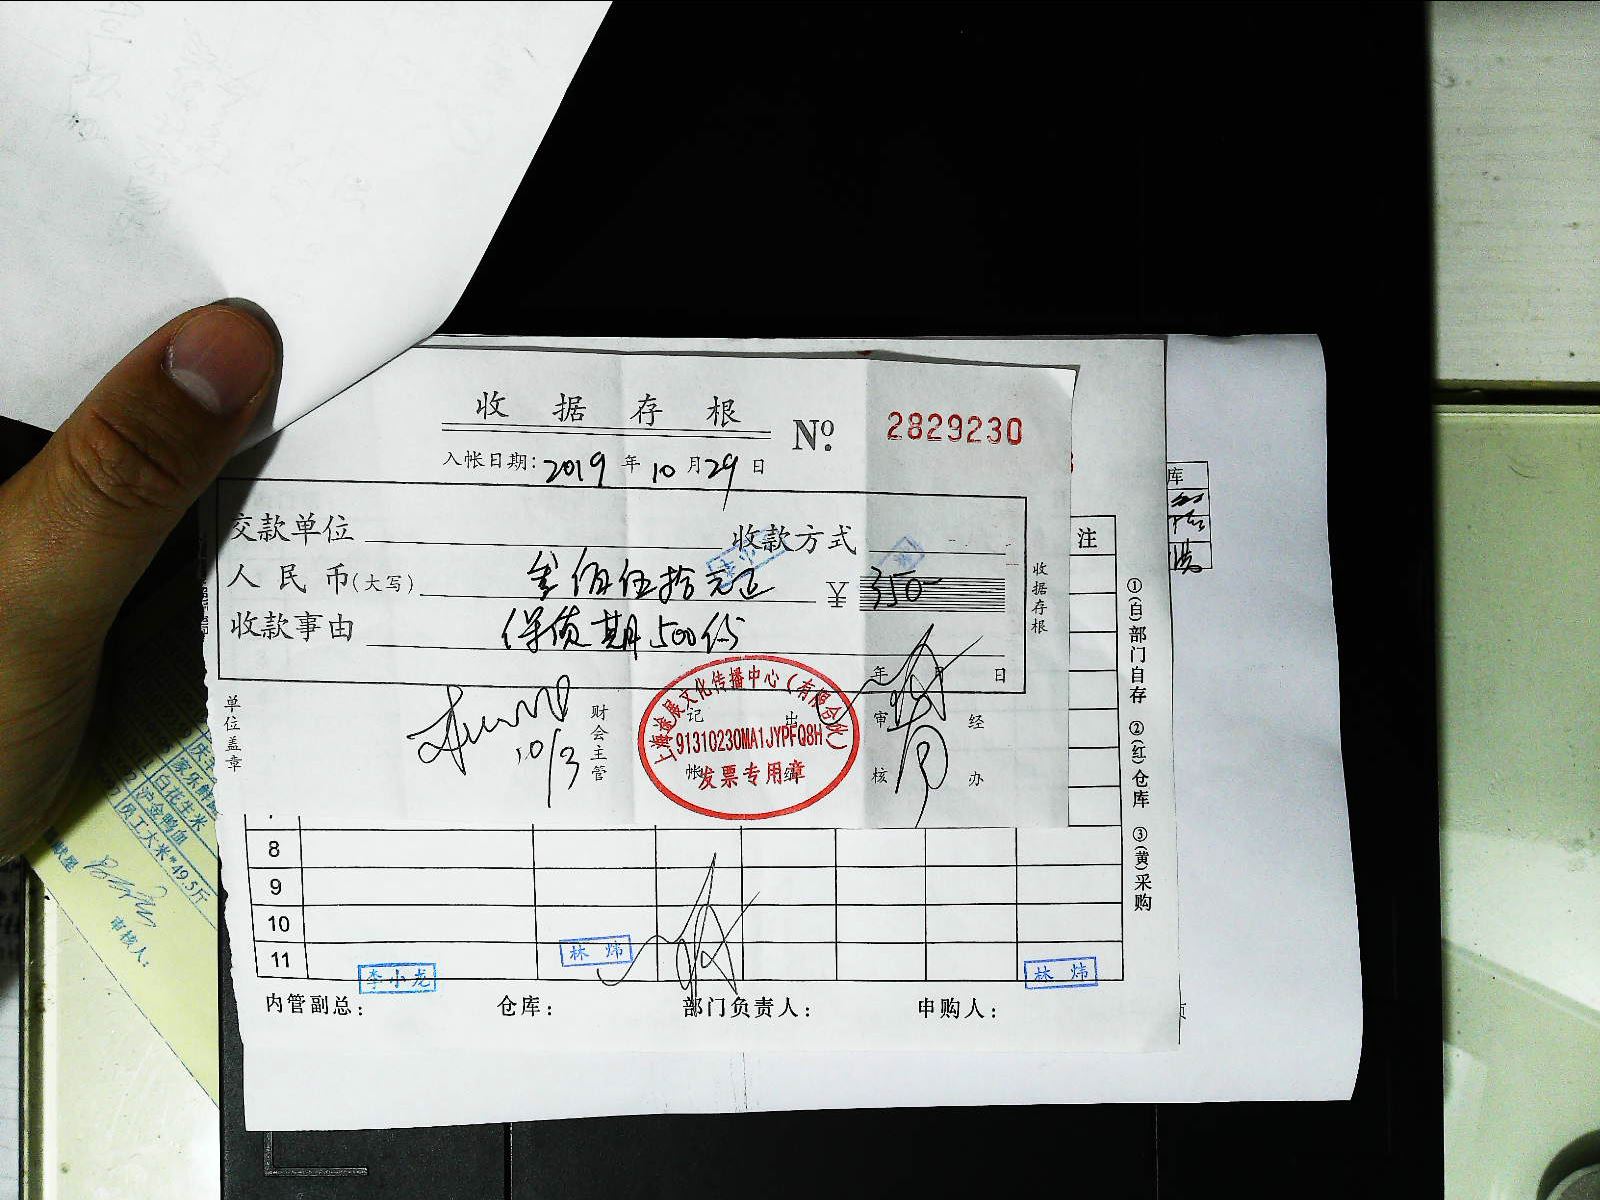 收据存根
№ 2829230
入帐日期：2019年10月29日
交款单位 收款方式
人民币(大写) 叁佰伍拾元正 ¥ 350-
收款事由 保质期500份
收据存根
年 月 日
单位盖章
财会主管
记帐
出纳
审核
经办
10/3
上海途展文化传播中心（有限合伙）
91310230MA1JYPFQ8H
发票专用章
注
①(白)部门自存 ②(红)仓库 ③(黄)采购
库
7
8
9
10
11
李小龙
林炜
林炜
内管副总：
仓库：
部门负责人：
申购人：
白花生米
沪金鸭血
员工大米*49.5斤
审核人：